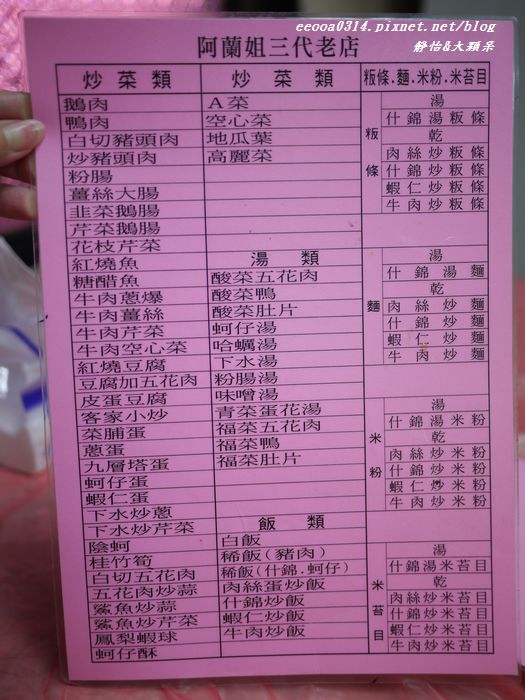 eeooa0314.pixnet.net/blog
靜怡&大顆呆
阿蘭姐三代老店
炒菜類
鵝肉
鴨肉
白切豬頭肉
炒豬頭肉
粉腸
薑絲大腸
韭菜鵝腸
芹菜鵝腸
花枝芹菜
紅燒魚
糖醋魚
牛肉蔥爆
牛肉薑絲
牛肉芹菜
牛肉空心菜
紅燒豆腐
豆腐加五花肉
皮蛋豆腐
客家小炒
菜脯蛋
蔥蛋
九層塔蛋
蚵仔蛋
蝦仁蛋
下水炒蔥
下水炒芹菜
陰蚵
桂竹筍
白切五花肉
五花肉炒蒜
鯊魚炒蒜
鯊魚炒芹菜
鳳梨蝦球
蚵仔酥
炒菜類
A菜
空心菜
地瓜葉
高麗菜
湯類
酸菜五花肉
酸菜鴨
酸菜肚片
蚵仔湯
哈蠣湯
下水湯
粉腸湯
味噌湯
青菜蛋花湯
福菜五花肉
福菜鴨
福菜肚片
飯類
白飯
稀飯(豬肉)
稀飯(什錦.蚵仔)
肉絲蛋炒飯
什錦炒飯
蝦仁炒飯
牛肉炒飯
粄條.麵.米粉.米苔目
粄條
湯
什錦湯粄條
乾
肉絲炒粄條
什錦炒粄條
蝦仁炒粄條
牛肉炒粄條
麵
湯
什錦湯麵
乾
肉絲炒麵
什錦炒麵
蝦仁炒麵
牛肉炒麵
米粉
湯
什錦湯米粉
乾
肉絲炒米粉
什錦炒米粉
蝦仁炒米粉
牛肉炒米粉
米苔目
湯
什錦湯米苔目
乾
肉絲炒米苔目
什錦炒米苔目
蝦仁炒米苔目
牛肉炒米苔目